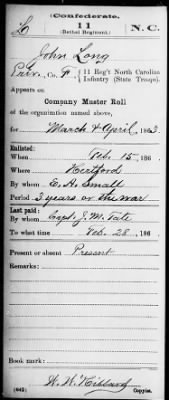 (Confederate.)
L 11 N. C.
(Bethel Regiment).
John Long
Priv., Co. F, 11 Reg't North Carolina Infantry (State Troops).
Appears on
Company Muster Roll
of the organization named above,
for March & April, 1863.
Enlisted:
When Feb. 15, 186 .
Where Hertford
By whom E. A. Small
Period 3 years or the war
Last paid:
By whom Capt. J. M. Tate
To what time Feb. 28, 186 .
Present or absent Present
Remarks:
Book mark:
(642) Copyist.